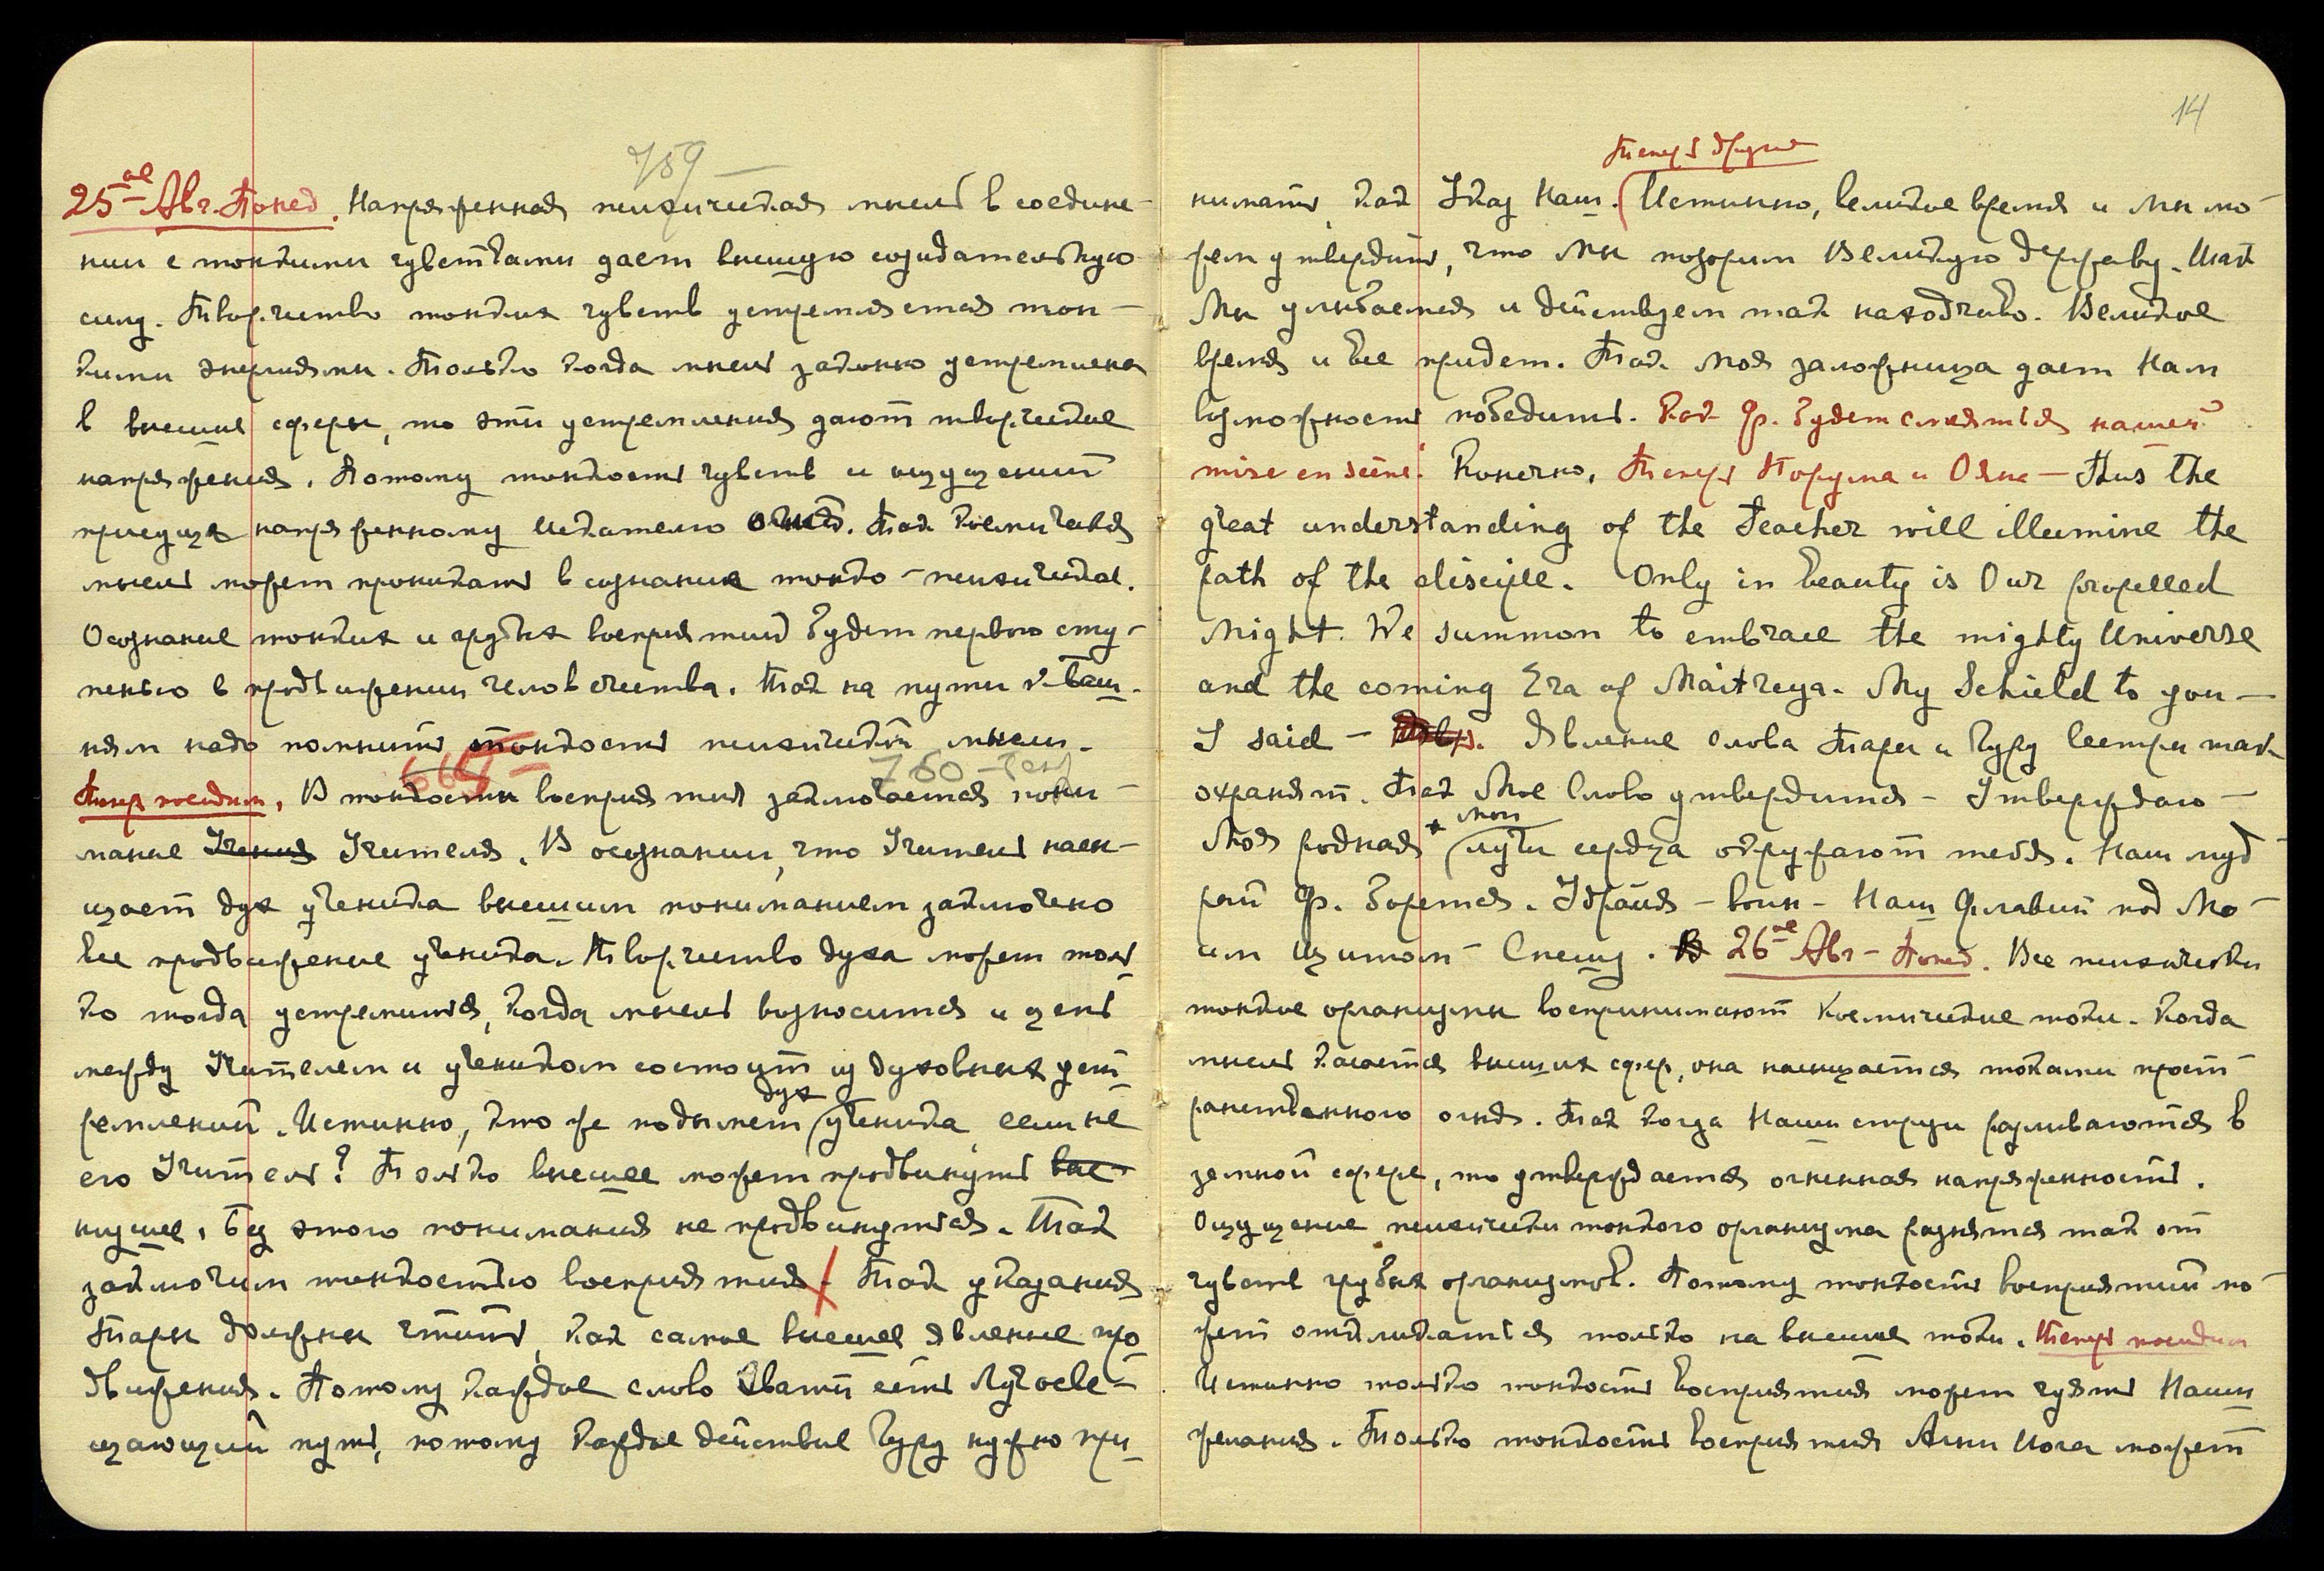 759 —
25ое Авг. Понед. Напряженная психическая мысль в соедине-
нии с тонкими чувствами дает высшую созидательную
силу. Творчество тонких чувств устремляется тон-
кими энергиями. Только когда мысль зорко устремлена
в высшие сферы, то эти устремления дают творческие
напряжения. Потому тонкость чувств и ощущений
присуща напряженному искателю огня. Так космическая
мысль может проникать в сознание тонко-психическое.
Осознание тонких и грубых восприятий будет первою сту-
пенью в продвижении человечества. Так на пути к башн-
ям надо помнить тонкость психической мысли.
669 — 760 —
Теперь последнии. В тонкости восприятия заключается пони-
мание Учения Учителя. В осознании, что Учитель насы-
щает дух ученика высшим пониманием заключено
все продвижение ученика. Творчество духа может толь-
ко тогда устремиться, когда мысль возносится и цепь
между Учителем и учеником состоит из духовных уст-
дух
ремлений. Истинно, кто же подымет ученика если не
его Учитель? Только высшее может продвинуть вые
низшее. Без этого понимания не продвинуться. Так
заключим тонкостью восприятия. Так указания
Тары должны чтить, как самое высшее явление про-
движения. Потому каждое слово Свати есть Луч осве-
щающий путь, потому каждое действие Гуру нужно при-
14
Теперь другие
нимать, как Указ Наш. Истинно, великое время и мы мо-
жем утвердить, что Мы позорим Великую державу. Итак
Мы улыбаемся и действуем так находчиво. Великое
время и все придет. Так Моя заложница дает Нам
возможность победить. Как Ф. будет смеяться нашей
mise en scène. Конечно. Теперь Порума и Ояна — Thus the
great understanding of the Teacher will illumine the
path of the disciple. Only in beauty is Our propelled
Might. We summon to embrace the mighty Universe
and the coming Era of Maitreya. My Schield to you —
I said — Явление слова Тары и Гуру сестры так
охранят. Так Мое Слово утвердится — Утверждаю —
мои
Моя родная * лучи сердца окружают тебя. Наш муд-
рый Ф. борется. Удрайя — воин — Наш Флавий под Мо-
им щитом — Спешу. В 26ое Авг — Понед. Все психически
тонкие организмы воспринимают Космические токи. Когда
мысль касается высших сфер, она насыщается токами прост-
ранственного огня. Так когда Наши струи разливаются в
земной сфере, то утверждается огненная напряженность.
Ощущение психически тонкого организма разнятся так от
чувств грубых организмов. Потому тонкость восприятий мо-
жет откликаться только на высшие токи. Теперь последнии
Истинно только тонкость восприятия может чуять Наши
желания. Только тонкость восприятия Агни Йога может